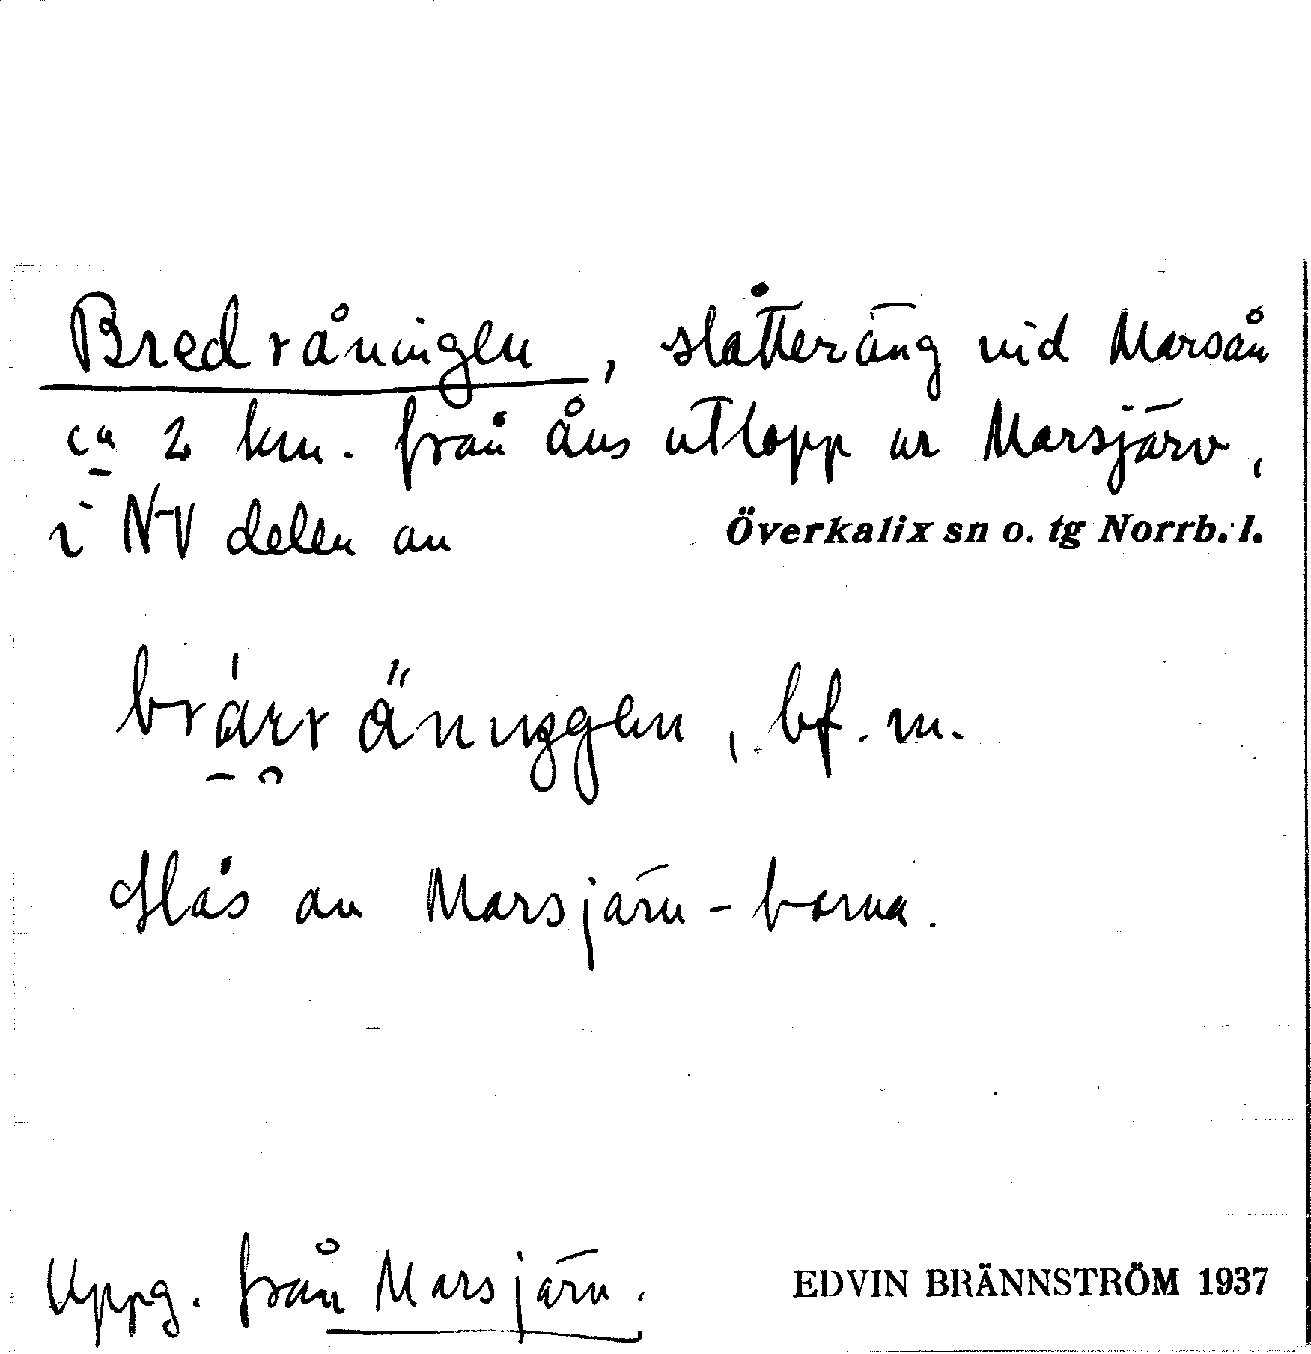 Bredråningen, slåtteräng vid Marsån
ca 2 km. från åns utlopp ur Marsjärv,
i NV delen av Överkalix sn o. tg Norrb. l.
bf. m.
Slås av Marsjärv-borna.
Uppg. från Marsjärv. EDVIN BRÄNNSTRÖM 1937